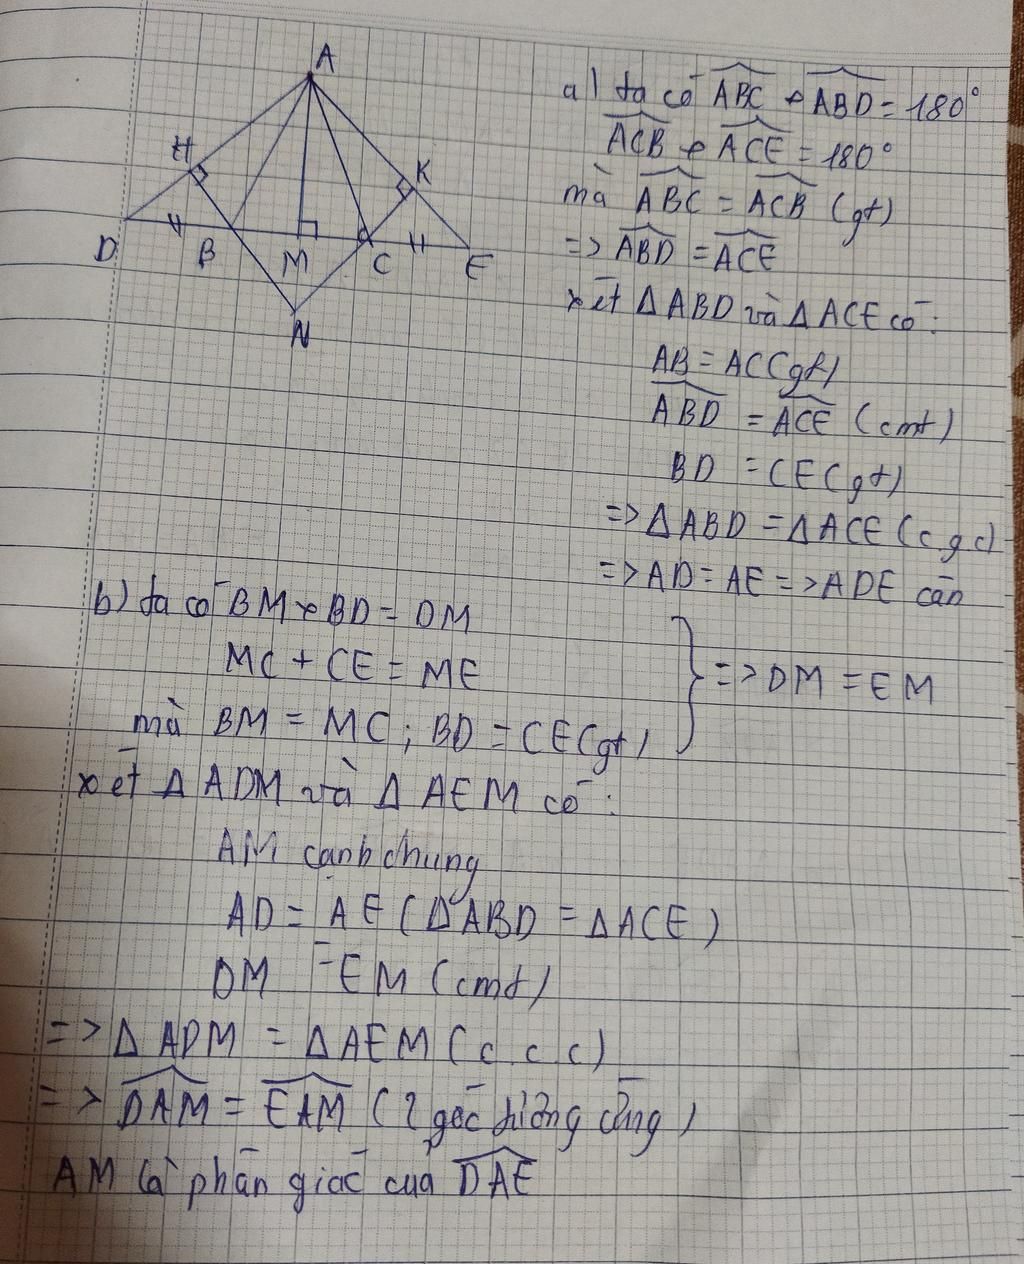 A
H
K
D
B
M
C
E
N
a) ta có ABC + ABD = 180°
ACB + ACE = 180°
mà ABC = ACB (gt)
=> ABD = ACE
xét Δ ABD và Δ ACE có:
AB = AC (gt)
ABD = ACE (cmt)
BD = CE (gt)
=> Δ ABD = Δ ACE (c g c)
=> AD = AE => ADE cân
b) ta có BM + BD = DM
MC + CE = ME
mà BM = MC ; BD = CE (gt)
=> DM = EM
xét Δ ADM và Δ AEM có:
AM cạnh chung
AD = AE (Δ ABD = Δ ACE)
DM = EM (cmt)
=> Δ ADM = Δ AEM (c c c)
=> DAM = EAM (2 góc tương ứng)
AM là phân giác của DAE